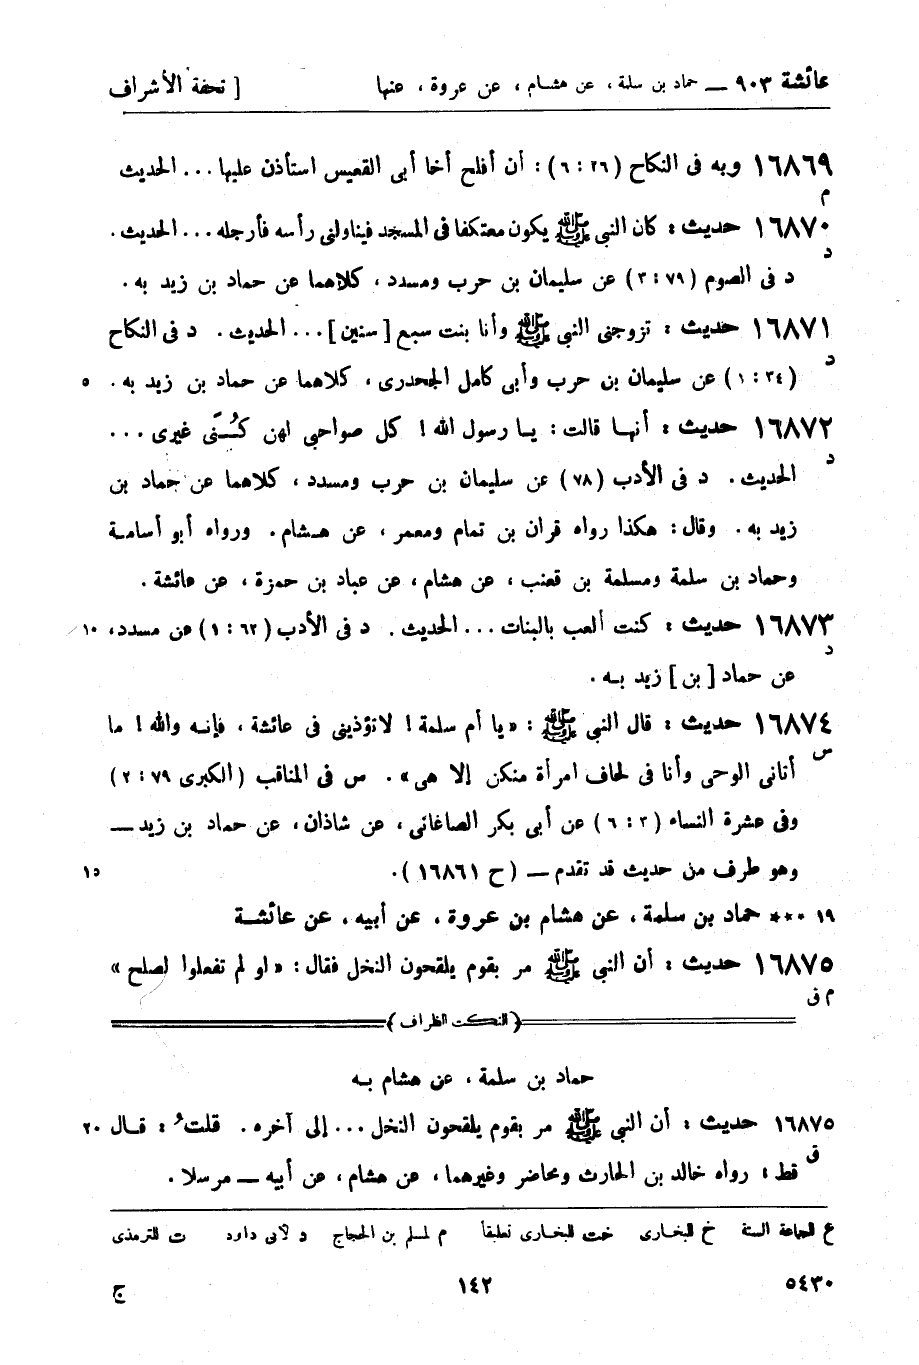 عائشة ٩٠٣ — حماد بن سلمة، عن هشام، عن عروة، عنها [ تحفة الأشراف
١٦٨٦٩ وبه فى النكاح (٢٦ : ٦) : أن أفلح أخا أبى القعيس استأذن عليها ... الحديث
م
١٦٨٧٠ حديث : كان النبى ﷺ يكون معتكفا فى المسجد فيناولنى رأسه فأرجله ... الحديث.
د
د فى الصوم (٧٩ : ٣) عن سليمان بن حرب ومسدد، كلاهما عن حماد بن زيد به.
١٦٨٧١ حديث : تزوجنى النبى ﷺ وأنا بنت سبع [سنين] ... الحديث. د فى النكاح
د
(٣٤ : ١) عن سليمان بن حرب وأبى كامل الجحدرى، كلاهما عن حماد بن زيد به. ٥
١٦٨٧٢ حديث : أنها قالت : يا رسول الله! كل صواحبى لهن كُنًى غيرى ...
د
الحديث. د فى الأدب (٧٨) عن سليمان بن حرب ومسدد، كلاهما عن حماد بن
زيد به. وقال : هكذا رواه قران بن تمام ومعمر، عن هشام. ورواه أبو أسامة
وحماد بن سلمة ومسلمة بن قعنب، عن هشام، عن عباد بن حمزة، عن عائشة.
١٦٨٧٣ حديث : كنت ألعب بالبنات ... الحديث. د فى الأدب (٦٢ : ١) عن مسدد، ١٠
د
عن حماد [بن] زيد به.
١٦٨٧٤ حديث : قال النبى ﷺ : «يا أم سلمة! لا تؤذينى فى عائشة، فإنه والله! ما
س
أتانى الوحى وأنا فى لحاف امرأة منكن إلا هى». س فى المناقب (الكبرى ٧٩ : ٢)
وفى عشرة النساء (٣ : ٦) عن أبى بكر الصاغانى، عن شاذان، عن حماد بن زيد —
وهو طرف من حديث قد تقدم — (ح ١٦٨٦١). ١٥
١٩ *** حماد بن سلمة، عن هشام بن عروة، عن أبيه، عن عائشة
١٦٨٧٥ حديث : أن النبى ﷺ مر بقوم يلقحون النخل فقال : «لو لم تفعلوا لصلح»
م ق
(النكت الظراف)
حماد بن سلمة، عن هشام به
١٦٨٧٥ حديث : أن النبى ﷺ مر بقوم يلقحون النخل ... إلى آخره. قلت : قال ٢٠
ق
قط : رواه خالد بن الحارث ومحاضر وغيرهما، عن هشام، عن أبيه — مرسلا.
ع للجماعة الستة خ للبخارى خت للبخارى تعليقاً م لمسلم بن الحجاج د لابى داود ت للترمذى
٥٤٣٠ ١٤٢ ج